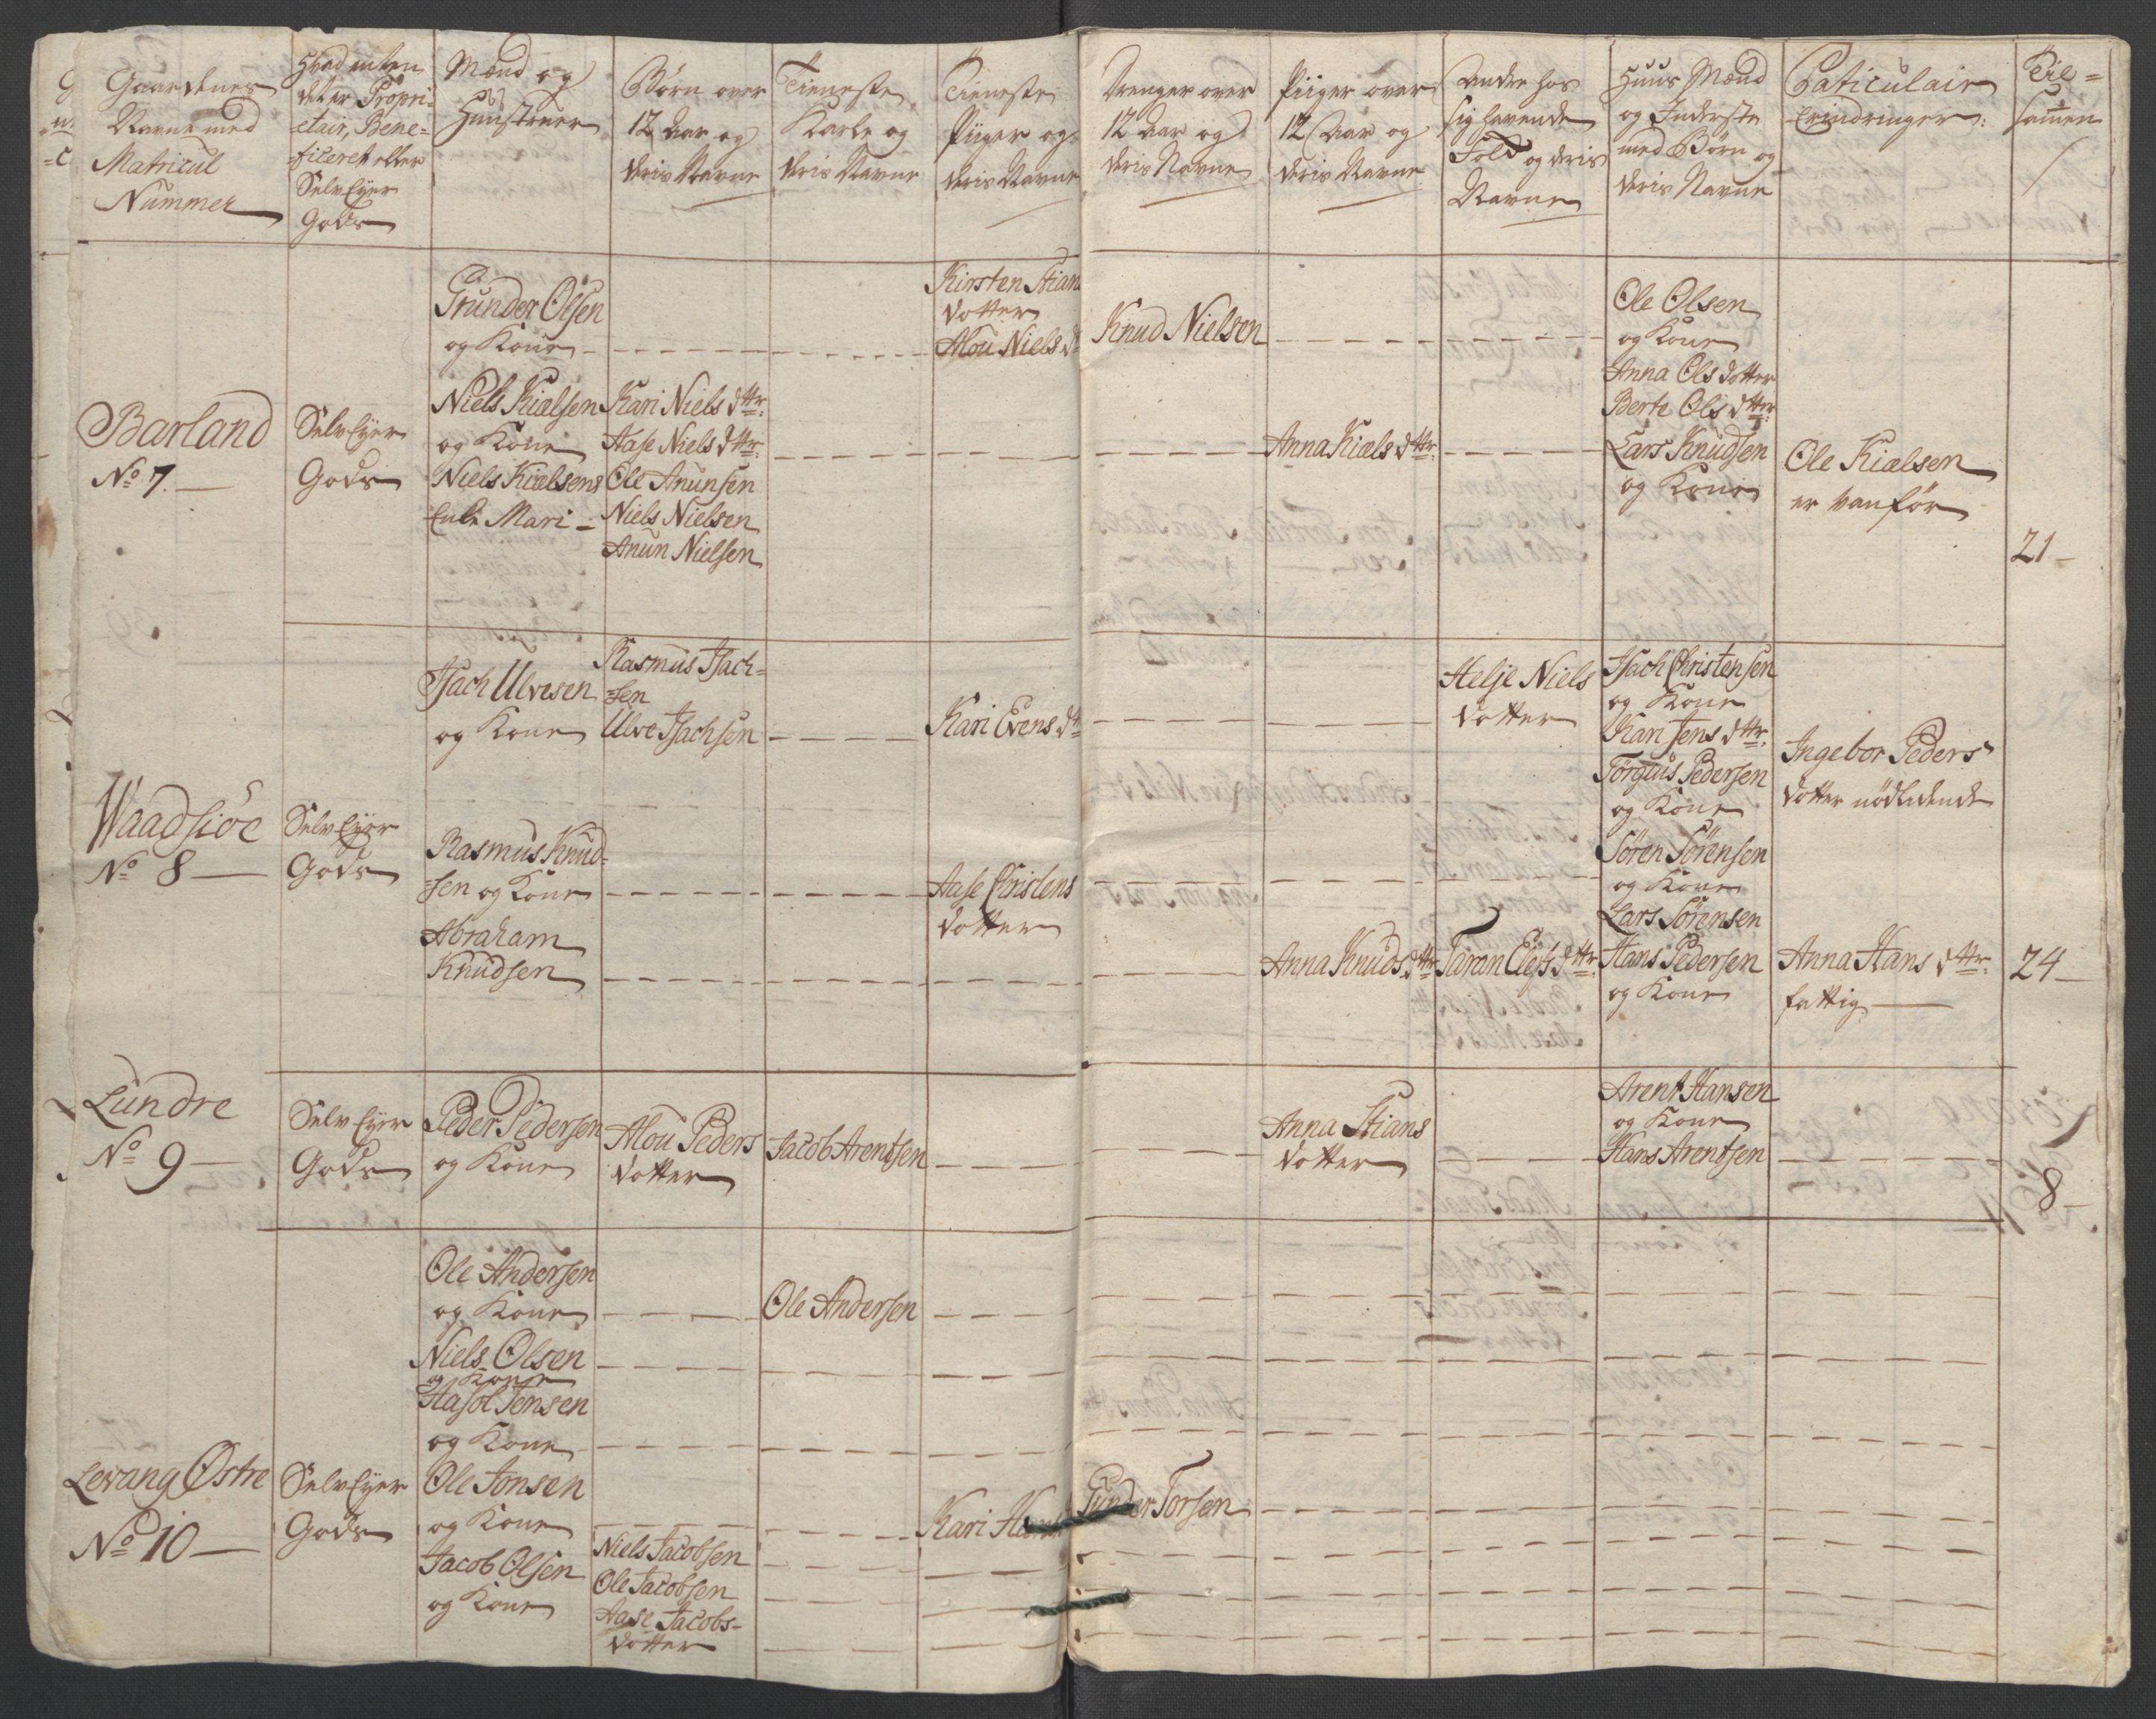 Gaardenes
Navne med
Matricul
Nummer
Hvad enten
det er Propri-
etair, Bene-
ficeret eller
Selv Eyer
Gods
Mænd og
Hustruer
Børn over
12 Aar og
deris Navne
Tieneste
Karle og
deris Navne
Tieneste
Piiger og
deris Navne
Drenger over
12 Aar og
deris Navne
Piiger over
12 Aar og
deris Navne
Andre hos
sig havende
Folk og deris
Navne
Huus Mænd
og Inderste
med Børn og
deris Navne
Paticulair
Erindringer.
Til=
sam̄en
Barland
No 7.
Selv Eyer
Gods
Gunder Olsen
og Kone
Niels Kielsen
og Kone
Niels Kielsens
Enke Mari
Kari Niels dttr.
Aase Niels dttr.
Ole Anunsen
Niels Nielsen
Anun Nielsen
Kirsten Stians
dotter
Alou Niels d
Knud Nielsen
Anna Kiels dttr.
Ole Olsen
og Kone
Anna Ols dotter
Berte Ols dttr
Lars Knudsen
og Kone
Ole Kielsen
er vanför
21
Waadsiöe
No 8
Selv Eyer
Gods
Isach Ulvesen
og Kone
Rasmus Knud-
sen og Kone
Abraham
Knudsen
Rasmus Isach=
=sen
Ulve Isachsen
Kari Evens dt
Aase Christens
dotter
Anna Knuds dttr
Helje Niels
dotter
Taran Elefs dttr.
Isach Christensen
og Kone
Kari Jens dttr.
Torguus Pedersen
og Kone
Sören Sörensen
og Kone
Lars Sörensen
Hans Pedersen
og Kone
Ingebor Peders
dotter nödlidende
Anna Hans dttr.
fattig
24
Lundre
No 9
Selv Eyer
Gods
Peder Pedersen
og Kone
Alou Peders
dotter
Jacob Arentsen
Anna Stians
dotter
Arent Hansen
og Kone
Hans Arentsen
8
Levang Østre
No 10
Selv Eyer
Gods
Ole Andersen
og Kone
Niels Olsen
og Kone
Ole Jonsen
og Kone
Jacob Olsen
og Kone
Niels Jacobsen
Ole Jacobsen
Aase Jacobs-
dotter
Ole Andersen
Kari
Gunder Torsen